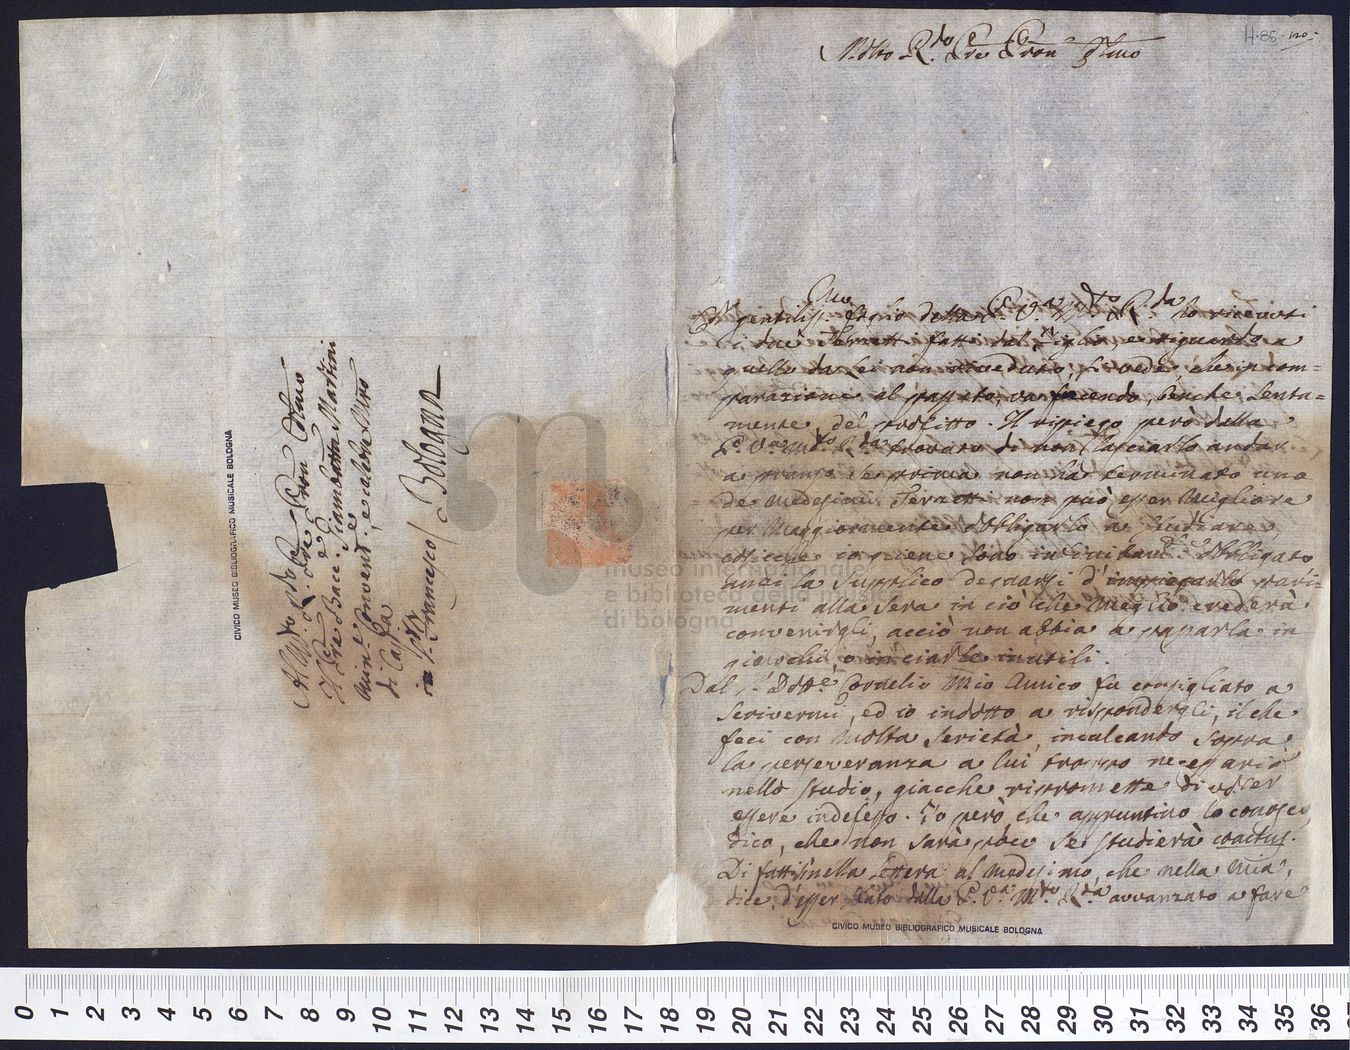 H.85. 120.
Molto R.do Pre Pron Stmo
Col gentiliss.mo foglio della P. V.a M.to R.da ho ricevuti
li due Terzetti fatti dal Figlio, e riguardo a
quello da lei non riveduto, si vede, che in com=
parazione al passato, va facendo, benche lenta=
mente, del profitto. Il ripiego però della
P. V.a M.to R.da trovato di non lasciarlo andar
a pranzo se prima non ha terminato uno
de medesimi Terzetti non può esser migliore
per maggiormente obbligarlo a studiare,
ed io gliene sono infinitam.te obbligato
anzi la supplico degnarsi d'impiegarlo pari=
menti alla sera in ciò che meglio crederà
convenirgli, acciò non abbia a passarla in
giuochi, o in ciarle inutili.
Dal S.r Dott.e Cornelio mio Amico fu consigliato a
scrivermi, ed io indotto a rispondergli, il che
feci con molta serietà, incalcando sopra
la perseveranza a lui troppo necessaria
nello studio, giacche ripromette di voler
essere indefesso. Io però, che appuntino lo conosco,
dico, che non sarà poco se studierà coactus.
Di fatti nella lettera al medesimo, che nella mia,
dice d'esser stato dalla P. V.a M.to R.da avvanzato a fare
CIVICO MUSEO BIBLIOGRAFICO MUSICALE BOLOGNA
Al Molto Rdo Pre Pron Colmo
Il Pre Bacc. Giambatta Martini
Min.e Convent.e e celebre
di Cappa
in S. Francesco / Bologna
CIVICO MUSEO BIBLIOGRAFICO MUSICALE BOLOGNA
museo internazionale
e biblioteca della musica
di bologna
0 1 2 3 4 5 6 7 8 9 10 11 12 13 14 15 16 17 18 19 20 21 22 23 24 25 26 27 28 29 30 31 32 33 34 35 36